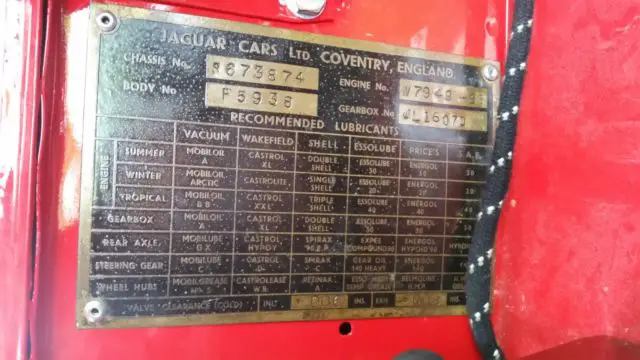 JAGUAR CARS LTD. COVENTRY, ENGLAND
CHASSIS No. S673874 ENGINE No. W7949-
BODY No F5936 GEARBOX No JL16073
RECOMMENDED LUBRICANTS
VACUUM WAKEFIELD SHELL ESSOLUBE PRICE'S S.A.E.
ENGINE
SUMMER MOBILOIL A CASTROL XL DOUBLE SHELL ESSOLUBE 30 ENERGOL 30 30
WINTER MOBILOIL ARCTIC CASTROLITE SINGLE SHELL ESSOLUBE 20 ENERGOL 20 20
TROPICAL MOBILOIL BB CASTROL XXL TRIPLE SHELL ESSOLUBE 40 ENERGOL 40 40
GEARBOX MOBILOIL A CASTROL XL DOUBLE SHELL ESSOLUBE 30 ENERGOL 30
REAR AXLE MOBILUBE GX CASTROL HYPOY SPIRAX EXPEE COMPOUND ENERGOL HYPOID
STEERING GEAR MOBILUBE C CASTROL D SPIRAX C GEAR OIL 140 HEAVY ENERGOL
WHEEL HUBS MOBILGREASE CASTROLEASE W.B. RETINAX A GREASE BELMOLINE
VALVE CLEARANCE (COLD) INL. INS. EXH. INS.